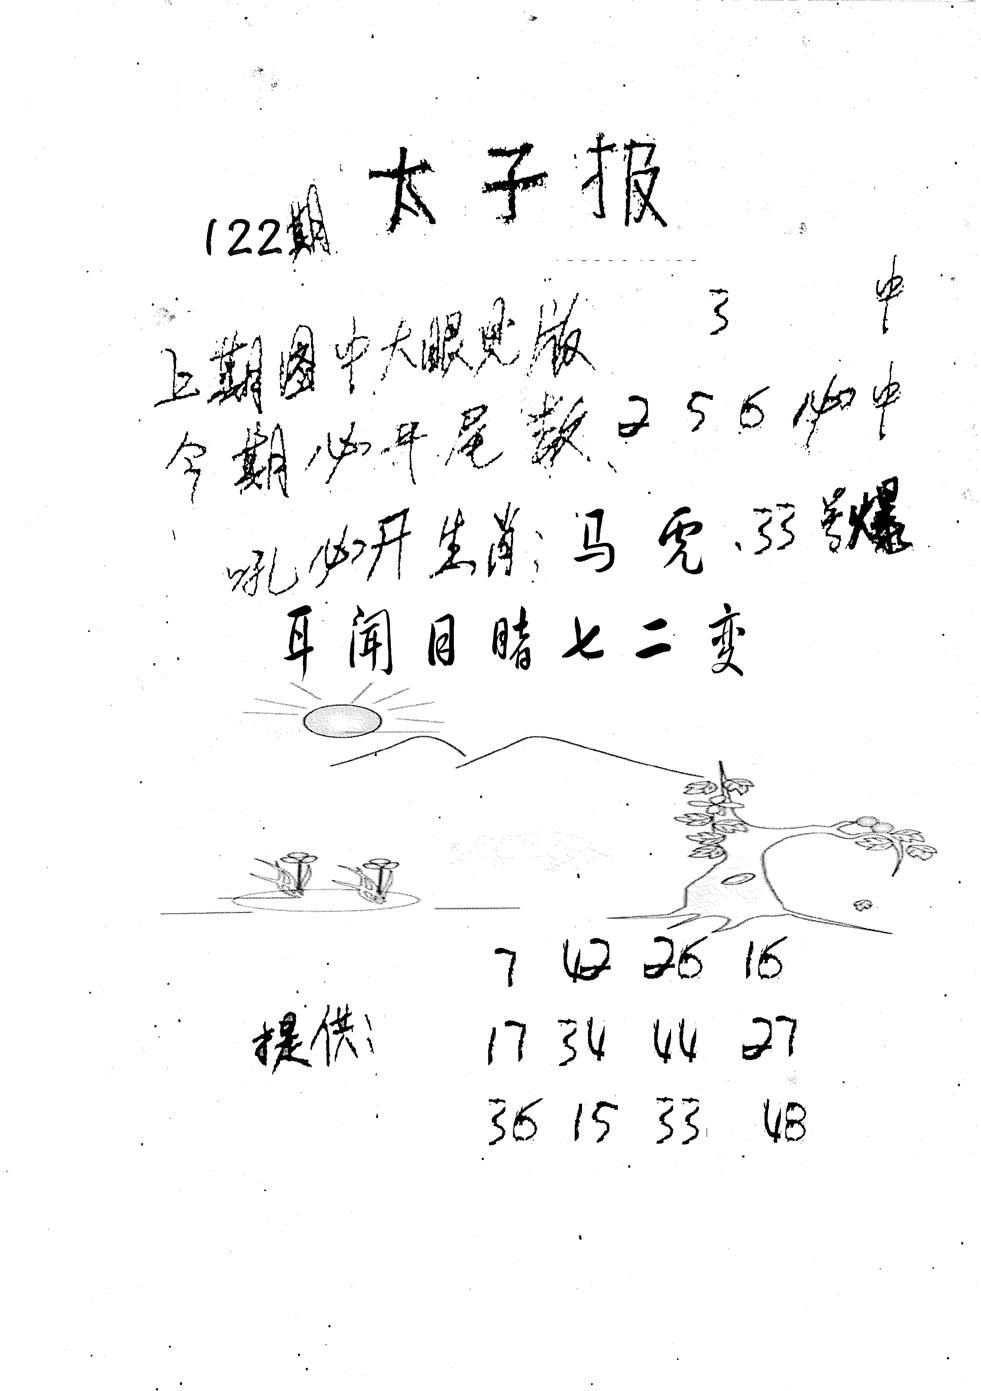 太子报
122期
上期图中大眼见版 3 中
今期必开尾数、2 5 6 必中
吼必开生肖:马虎、33号爆
耳闻目睹七二变
7 42 26 16
提供: 17 34 44 27
36 15 33 48